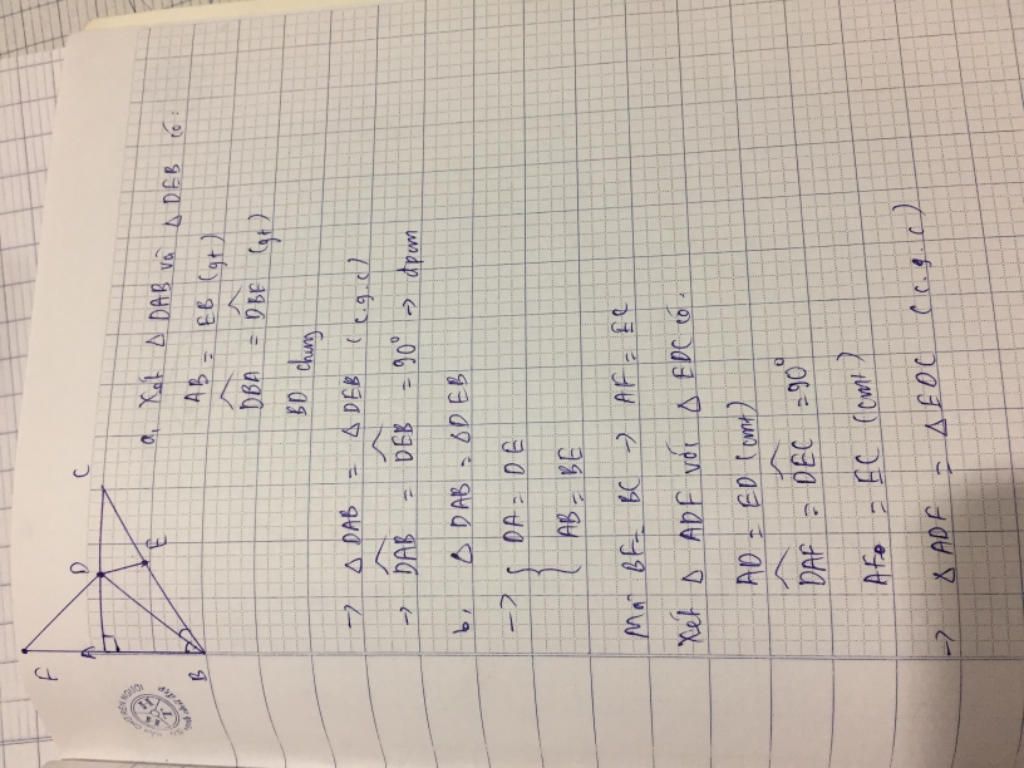 F
A
D
C
B
E
a, Xét Δ DAB và Δ DEB có:
AB = EB (gt)
DBA = DBE (gt)
BD chung
→ Δ DAB = Δ DEB (c.g.c)
→ DAB = DEB = 90° → đpcm
b, Δ DAB = Δ DEB
→ { DA = DE
AB = BE
Mà BF = BC → AF = EC
Xét Δ ADF với Δ EDC có.
AD = ED (cmt)
DAF = DEC = 90°
AF = EC (cmt)
→ Δ ADF = Δ EDC (c.g.c)